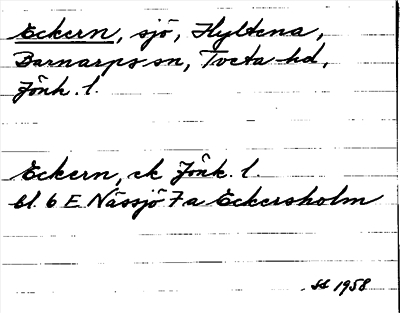 Eckern, sjö, Hyltena,
Barnarps sn, Tveta hd,
Jönk. l.
Eckern, ek Jönk. l.
bl. 6 E Nässjö 7 a Eckersholm
1958